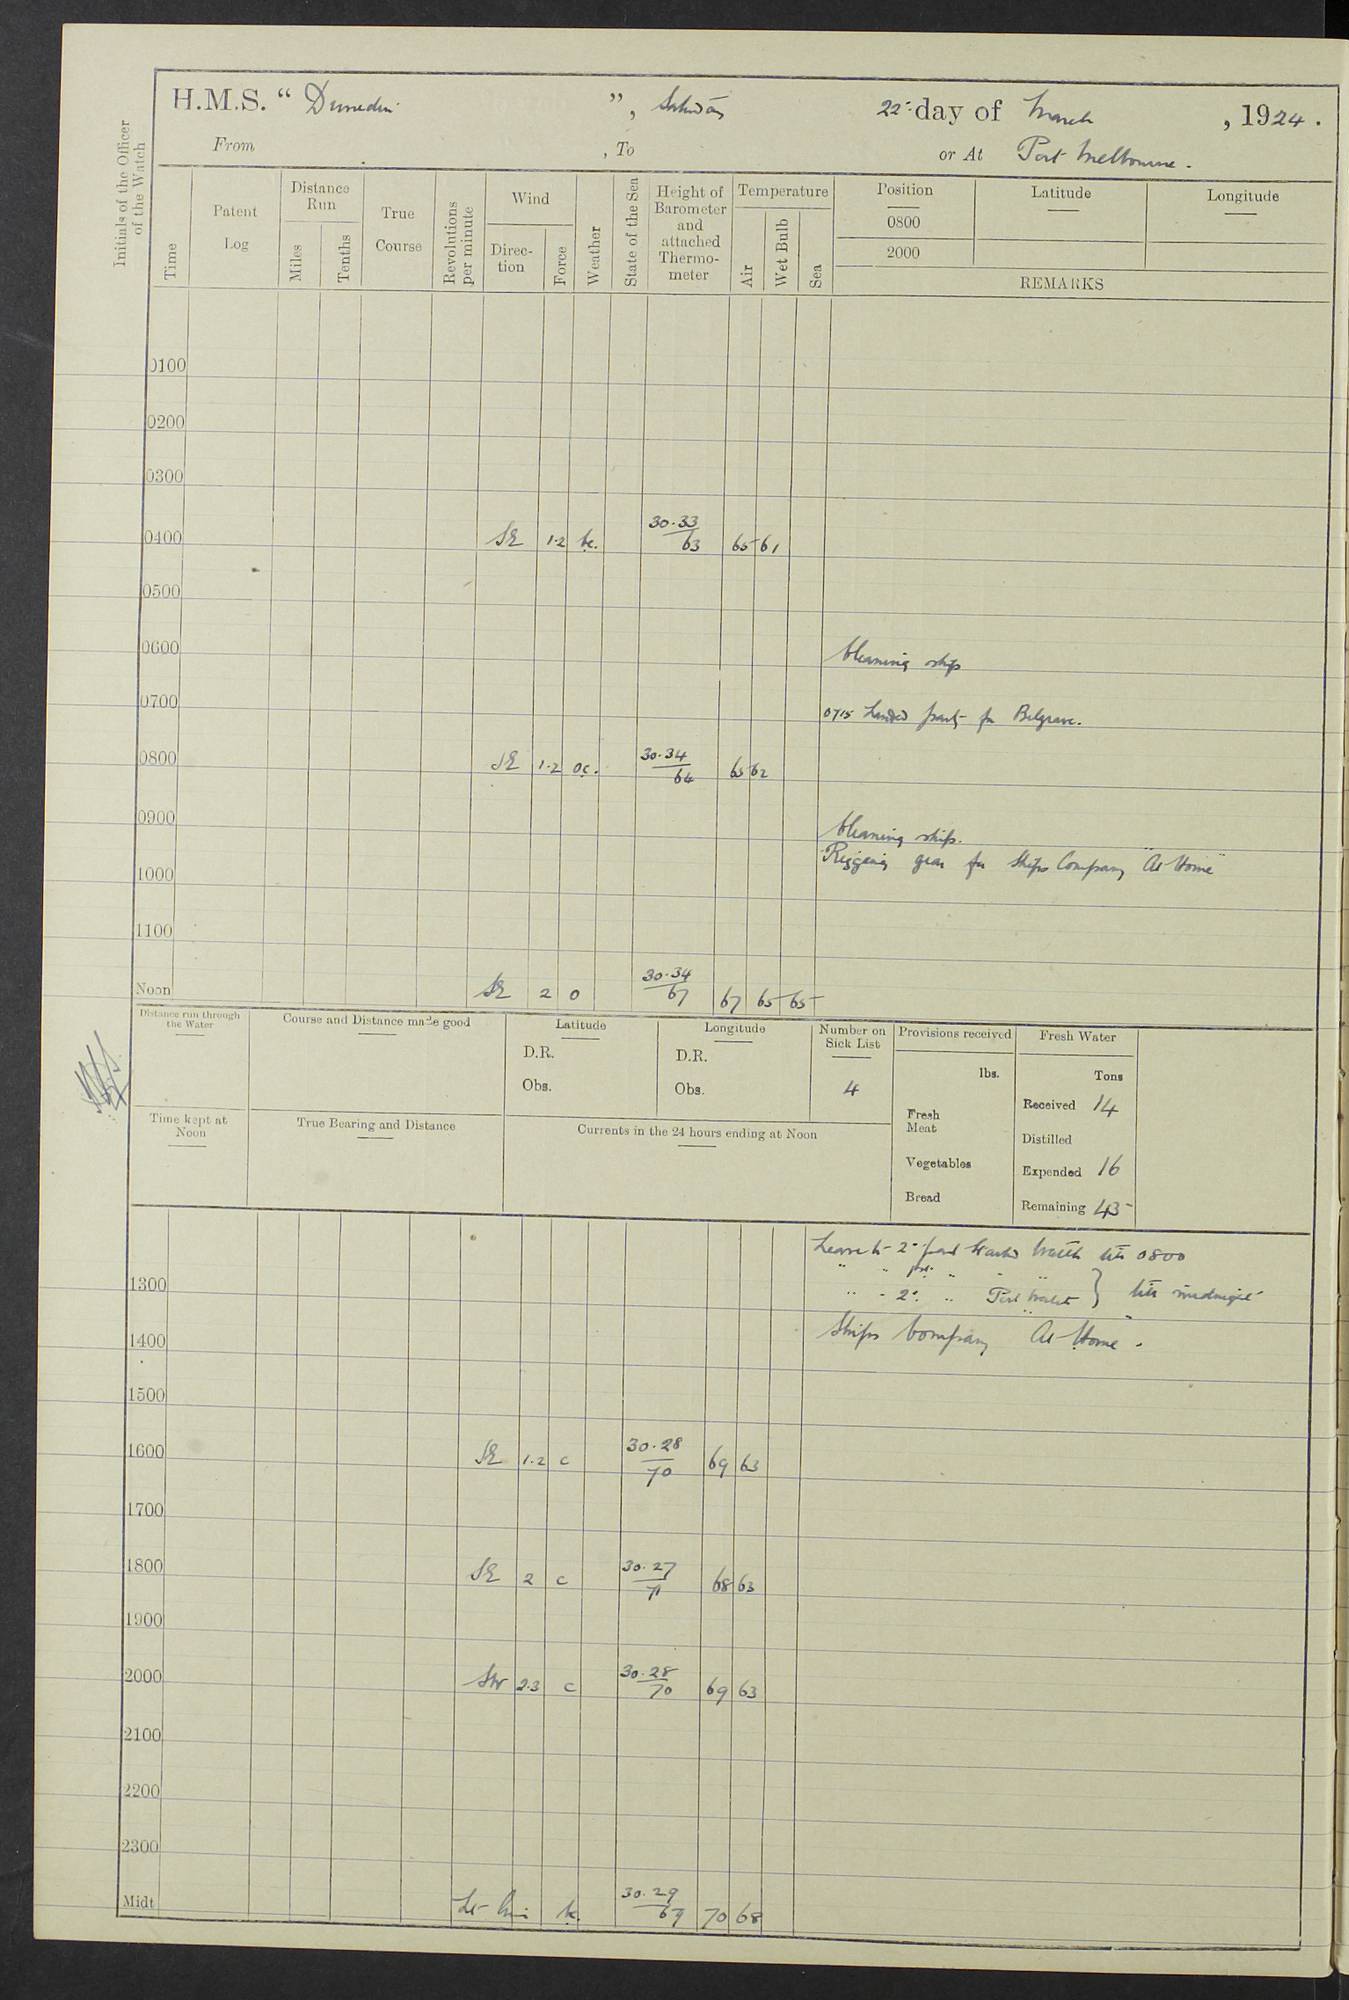 H.M.S. “ Dunedin ”, Saturday 22nd day of March, 1924.
From , To or At Port Melbourne.
Initials of the Officer of the Watch
Time
Patent Log
Distance Run
Miles
Tenths
True Course
Revolutions per minute
Wind
Direc-tion
Force
Weather
State of the Sea
Height of Barometer and attached Thermo-meter
Temperature
Air
Wet Bulb
Sea
Position Latitude Longitude
0800
2000
REMARKS
0100
0200
0300
0400 SE 1-2 bc. 30.33/63 65 61
0500
0600 Cleaning ship
0700 0715 Landed party for Belgrave.
0800 SE 1-2 oc. 30.34/64 65 62
0900 Cleaning ship.
Rigging gear for Ships Company "At Home"
1000
1100
Noon SE 2 o 30.34/67 67 65 65
Distance run through the Water
Course and Distance made good
Latitude
D.R.
Obs.
Longitude
D.R.
Obs.
Number on Sick List
4
Provisions received
lbs.
Fresh Meat
Vegetables
Bread
Fresh Water
Tons
Received 14
Distilled
Expended 16
Remaining 43
Time kept at Noon
True Bearing and Distance
Currents in the 24 hours ending at Noon
Leave to 2nd part Watch till 0800
" "
1300 " " 2nd " Port Watch } till midnight
Ships Company "At Home".
1400
1500
1600 SE 1-2 c 30.28/70 69 63
1700
1800 SE 2 c 30.27/71 68 63
1900
2000 SW 2-3 c 30.28/70 69 63
2100
2200
2300
Midt Lt airs bc. 30.29/69 70 68